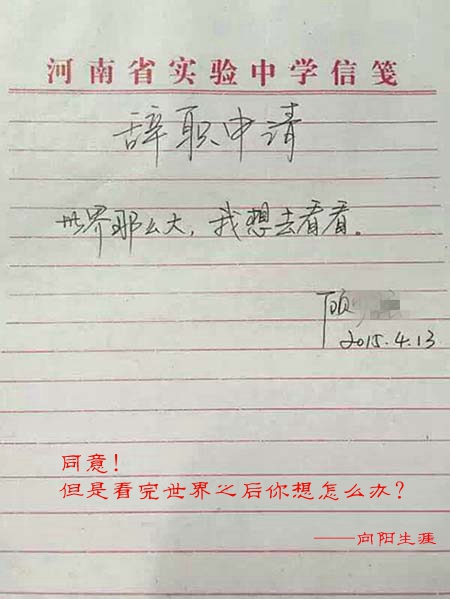 河南省实验中学信笺
辞职申请
世界那么大，我想去看看。
顾
2015.4.13
同意！
但是看完世界之后你想怎么办？
——向阳生涯